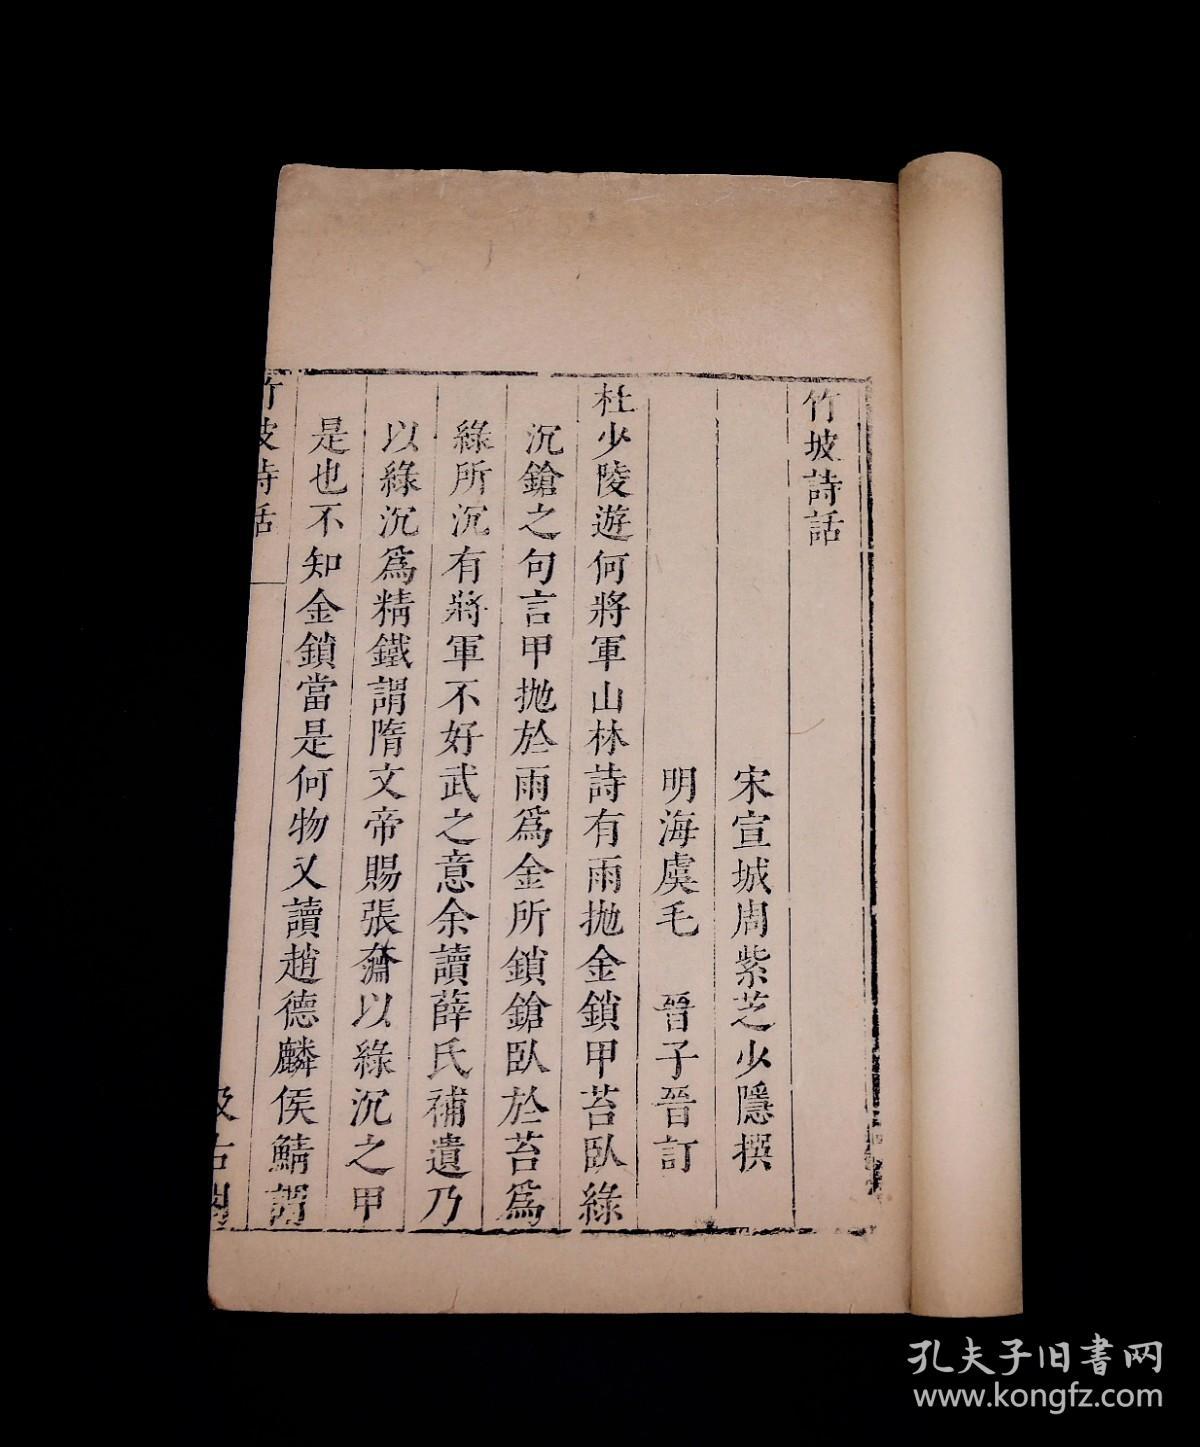 竹坡詩話
宋宣城周紫芝少隱撰
明海虞毛　晉子晉訂
杜少陵遊何將軍山林詩有雨拋金鎖甲苔臥綠
沉鎗之句言甲拋於雨為金所鎖鎗臥於苔爲
綠所沉有將軍不好武之意余讀薛氏補遺乃
以綠沉爲精鐵謂隋文帝賜張奫以綠沉之甲
是也不知金鎖當是何物又讀趙德麟侯鯖謂
竹坡詩話
汲古閣
孔夫子旧書网
www.kongfz.com